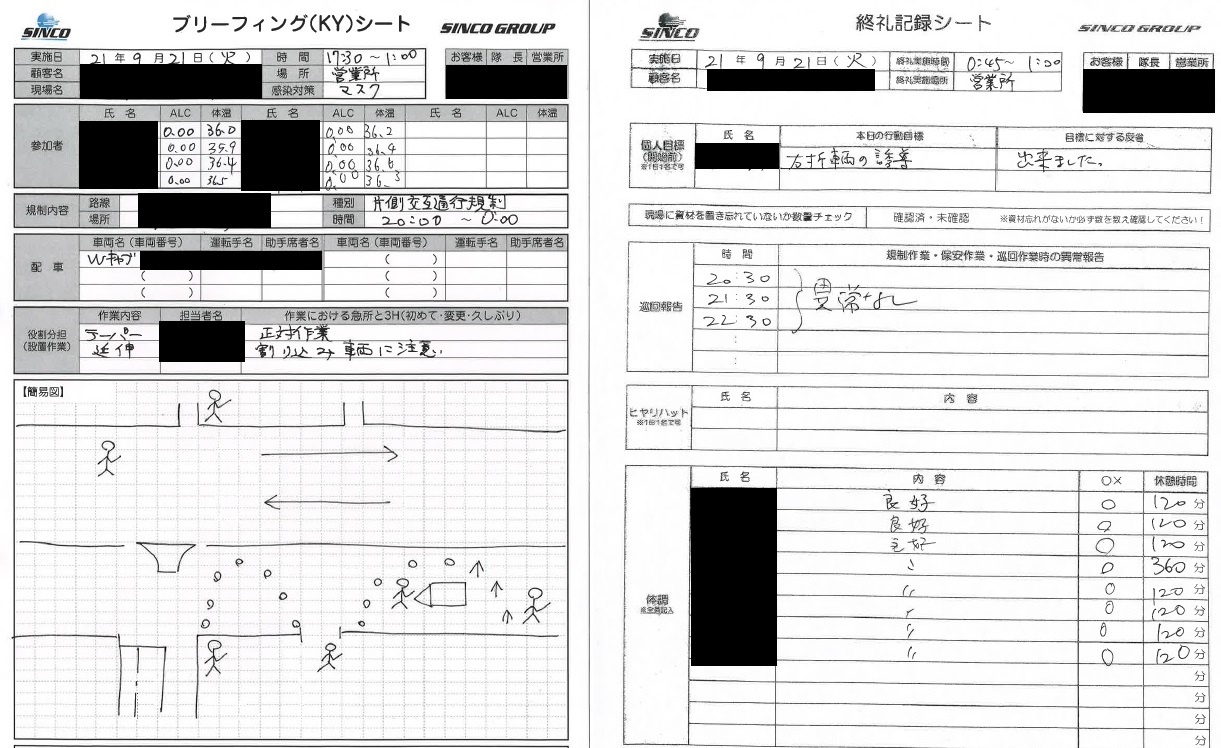 SINCO
ブリーフィング(KY)シート
SINCO GROUP
実施日 21年 9月 21日 (火) 時間 17:30 ~ 1:00
顧客名 場所 営業所
現場名 感染対策 マスク
お客様 隊長 営業所
参加者
氏名 ALC 体温 氏名 ALC 体温 氏名 ALC 体温
0.00 36.0 0.00 36.2
0.00 35.9 0.00 36.4
0.00 36.4 0.00 36.6
0.00 36.5 0.00 36.3
規制内容
路線 種別 片側交互通行規制
場所 時間 20:00 ~ 0:00
配車
車両名(車両番号) 運転手名 助手席者名 車両名(車両番号) 運転手名 助手席者名
Wキャブ ( )
( ) ( )
( ) ( )
役割分担
(設置作業)
作業内容 担当者名 作業における急所と3H(初めて・変更・久しぶり)
テーパー 正対作業
延伸 割り込み車両に注意
【簡易図】
SINCO
終礼記録シート
SINCO GROUP
実施日 21年 9月 21日 (火) 終礼実施時間 0:45~ 1:00
顧客名 終礼実施場所 営業所
お客様 隊長 営業所
個人目標
(開始前)
※1日1名で可
氏名 本日の行動目標 目標に対する反省
右折車両の誘導 出来ました。
現場に資材を置き忘れていないか数量チェック 確認済・未確認 ※資材忘れがないか必ず数を数え確認してください!
巡回報告
時間 規制作業・保安作業・巡回作業時の異常報告
20:30
21:30 異常なし
22:30
:
:
ヒヤリハット
※1日1名で可
氏名 内容
体調
※全員記入
氏名 内容 ○× 休憩時間
良好 ○ 120 分
良好 ○ 120 分
良好 ○ 120 分
〃 ○ 360 分
〃 ○ 120 分
〃 ○ 120 分
〃 ○ 120 分
〃 ○ 120 分
分
分
分
分